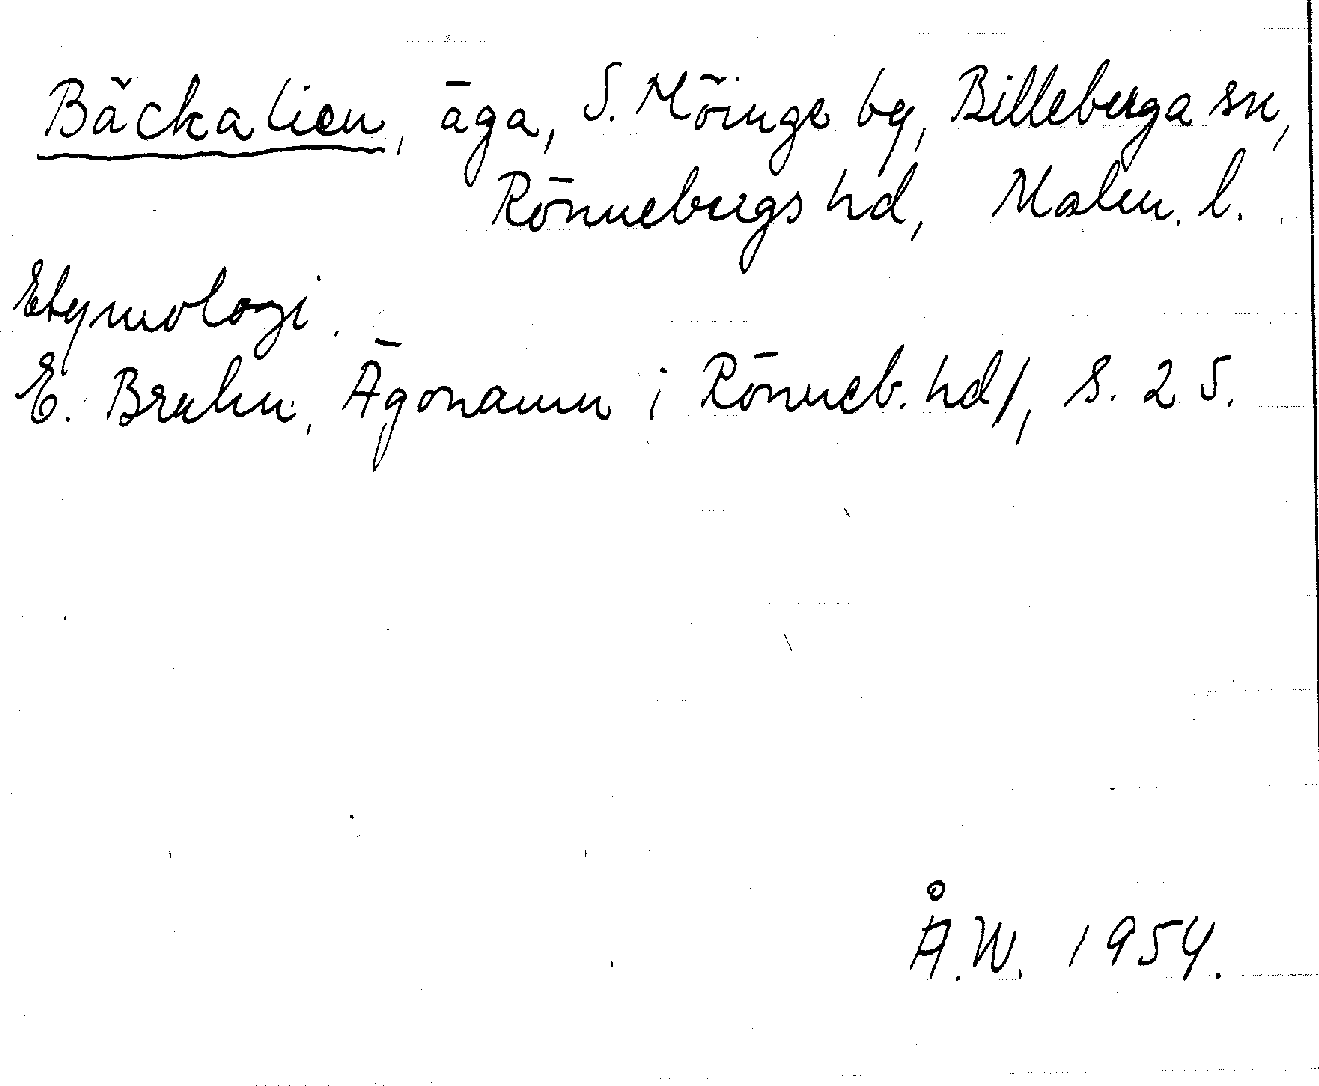 Bäckalien, äga, S. Möinge by, Billeberga sn,
Rönnebergs hd, Malm. l.
Etymologi.
E. Bruhn, Ägonamn i Rönneb. hd/, s. 25.
Å.W. 1954.